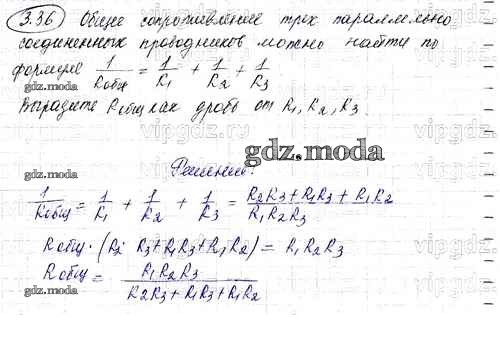 3.36 Общее сопротивление трех параллельно
соединенных проводников можно найти по
формуле 1/Rобщ = 1/R1 + 1/R2 + 1/R3
gdz.moda
Выразите Rобщ как дробь от R1, R2, R3
gdz.moda
Решение:
1/Rобщ = 1/R1 + 1/R2 + 1/R3 = (R2R3 + R1R3 + R1R2)/(R1R2R3)
gdz.moda
Rобщ · (R2 R3 + R1R3 + R1R2) = R1R2R3
Rобщ = R1R2R3/(R2R3 + R1R3 + R1R2)
gdz.moda